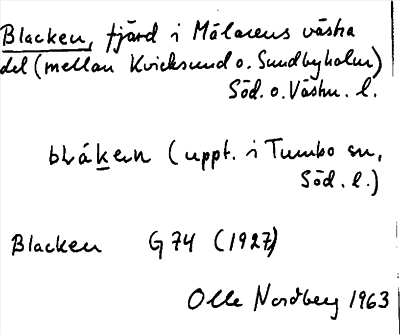 Blacken, fjärd i Mälarens västra
del (mellan Kvicksund o. Sundbyholm)
Söd. o. Västm. l.
bláken (uppt. i Tumbo sn,
Söd. l.)
Blacken G 74 (1927)
Olle Nordberg 1963